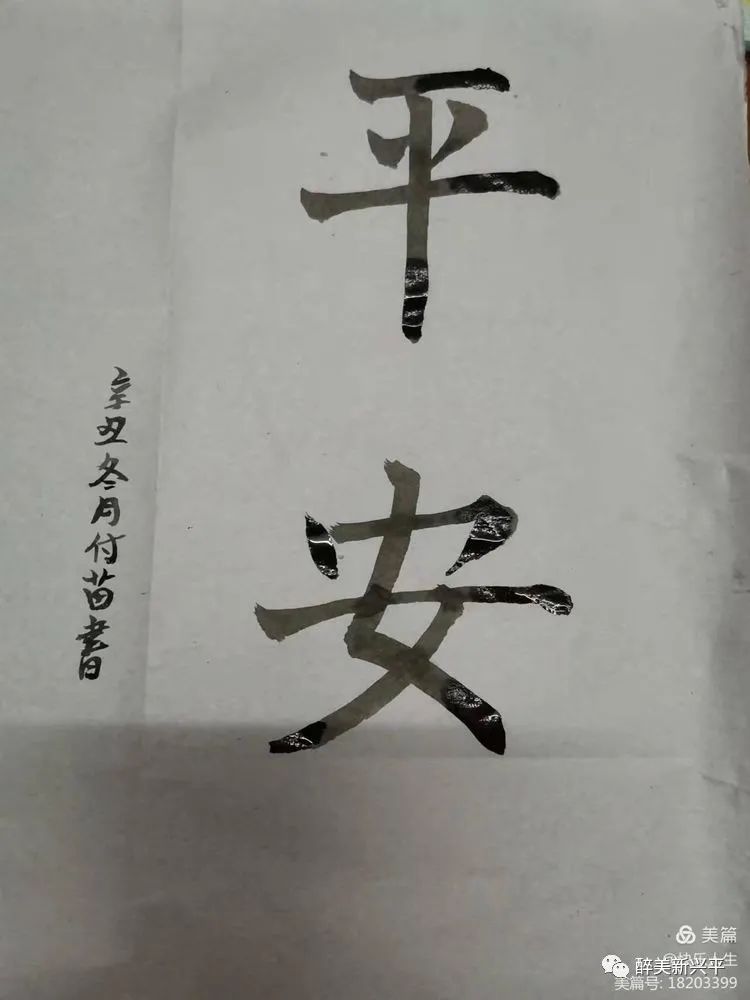 平安
辛丑冬月付苗書
美篇
醉美新兴平
美篇号: 18203399